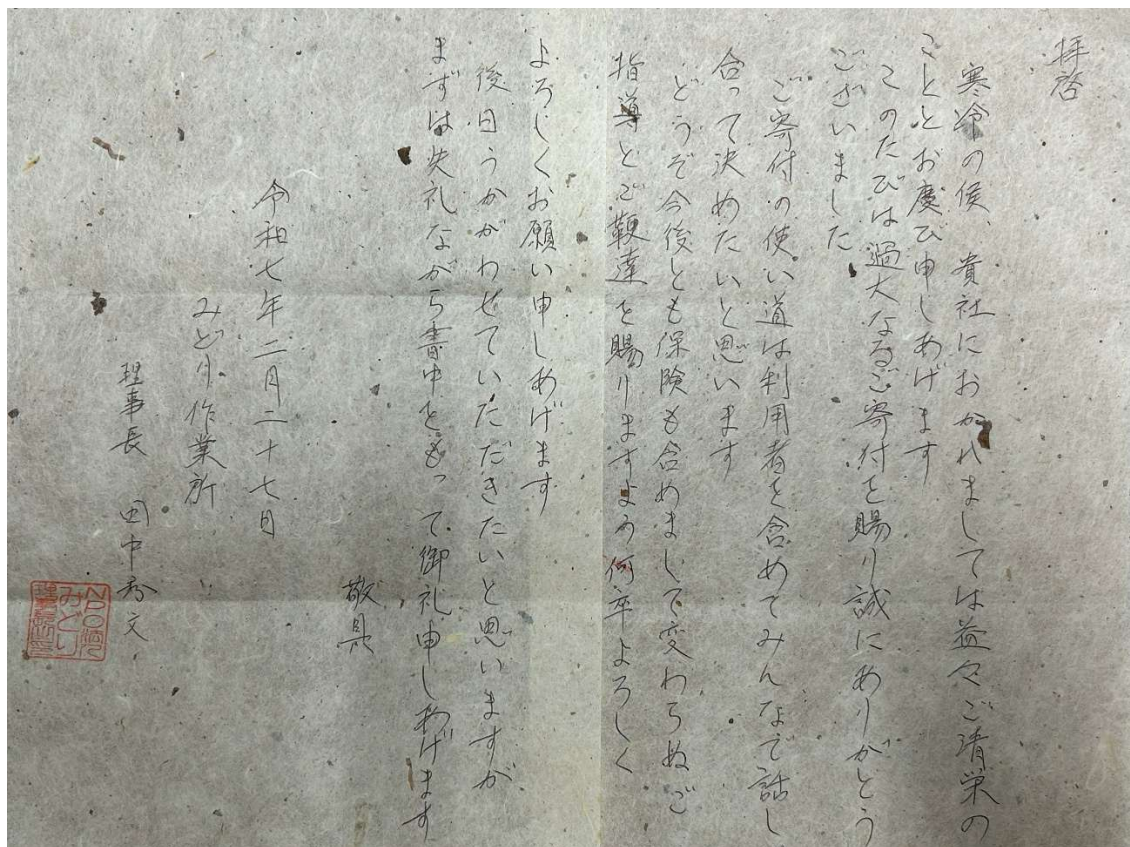 拝啓
寒冷の候、貴社におかれましては益々ご清栄の
こととお慶び申しあげます
このたびは過大なるご寄付を賜り誠にありがとう
ございました
ご寄付の使い道は利用者を含めてみんなで話し
合って決めたいと思います
どうぞ今後とも保険も含めまして変わらぬご
指導とご鞭達を賜りますよう何卒よろしく
よろしくお願い申しあげます
後日うかがわせていただきたいと思いますが
まずは失礼ながら書中をもって御礼申しあげます
敬具
令和七年二月二十七日
みどり作業所
理事長 田中秀文
みどり